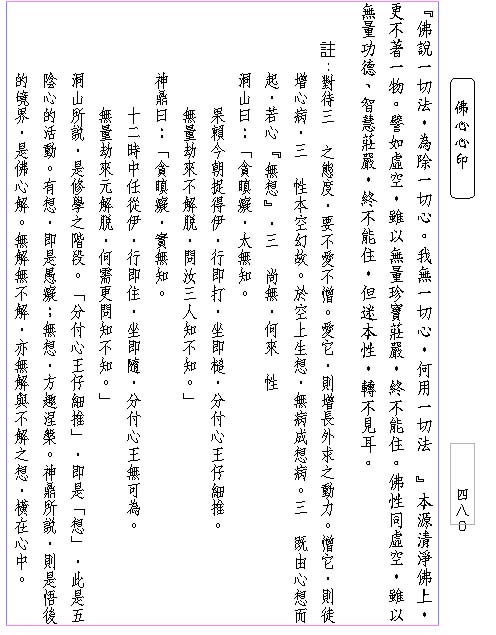 『佛說一切法，為除一切心。我無一切心，何用一切法　』本源清淨佛上，
更不著一物。譬如虛空，雖以無量珍寶莊嚴，終不能住。佛性同虛空，雖以
無量功德、智慧莊嚴，終不能住，但迷本性，轉不見耳。
註：對待三　之態度，要不愛不憎。愛它，則增長外求之動力。憎它，則徒
增心病，三　性本空幻故。於空上生想，無病成想病。三　既由心想而
起，若心『無想』，三　尚無，何來　性
洞山曰：「貪瞋癡，太無知。
果賴今朝捉得伊，行即打，坐即槌，分付心王仔細推。
無量劫來不解脫，問汝三人知不知。」
神鼎曰：「貪瞋癡，實無知。
十二時中任從伊，行即住，坐即隨，分付心王無可為。
無量劫來元解脫，何需更問知不知。」
洞山所說，是修學之階段。「分付心王仔細推」，即是「想」，此是五
陰心的活動。有想，即是愚癡；無想，方趣涅槃。神鼎所說，則是悟後
的境界，是佛心解。無解無不解，亦無解與不解之想，橫在心中。
佛心心印
四八０